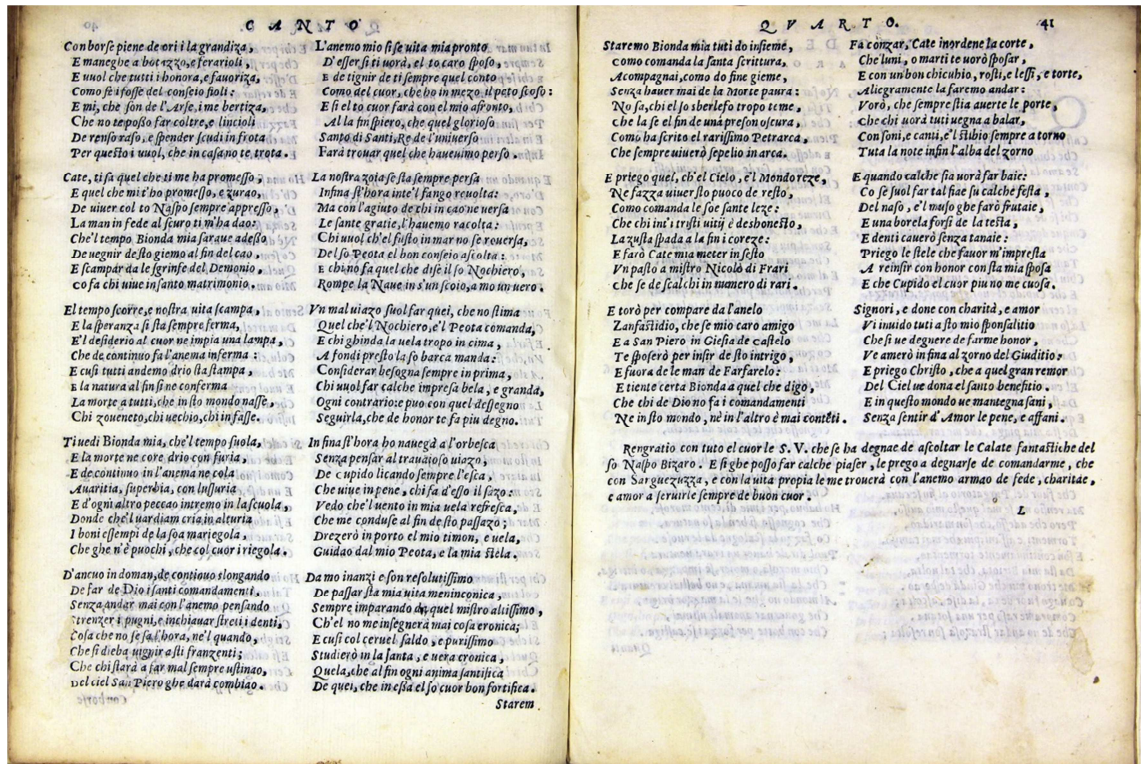 CANTO
Con borse piene de ori i la grandiza,
E maneghe a botazzo, e ferarioli,
E vuol che tutti i honora, e fauoriza,
Como se i fosse del conseio fioli:
E mi, che son de l'Arse, i me bertiza,
Che no te posso far coltre, e lincioli
De renso raso, e spender scudi in frota
Per questo i vuol, che in casa no te trota.
Cate, ti sa quel che ti me ha promesso,
E quel che mi t'ho promesso, e zurao,
De uiuer col to Naspo sempre appresso,
La man in fede al scuro ti m'ha dao:
Che'l tempo Bionda mia saraue adesso
De uegnir de sto giemo al fin del cao,
E scampar da le sgrinfe del Demonio,
Co fa chi uiue in santo matrimonio.
El tempo scorre, e nostra uita scampa,
E la speranza si sta sempre ferma,
E'l desiderio al cuor ne impia una lampa,
Che de continuo fa l'anema inferma:
E cusì tutti andemo drio sta stampa,
E la natura al fin si ne conferma
La morte a tutti, che in sto mondo nasse,
Chi zoueneto, chi uechio, chi in fasse.
Ti uedi Bionda mia, che'l tempo suola,
E la morte ne core drio con furia,
E de continuo in l'anema ne cola
Auaritia, superbia, con lussuria
E d'ogni altro peccao intremo in la scuola,
Donde che'l uardiam cria in alturia
I boni essempi de la soa mariegola,
Che ghe n'è puochi, che col cuor i riegola.
D'ancuo in doman, de continuo slongando
De far de Dio i santi comandamenti.
Senza andar mai con l'anemo pensando
Strenzer i pugni, e inchiauar streti i denti,
Cosa che no se sa l'hora, ne'l quando,
Che si dieba uignir a sti franzenti;
Che chi starà a far mal sempre ustinao,
Del ciel San Piero ghe darà combiao.
L'anemo mio si se uita mia pronto
D'esser si ti uorà, el to caro sposo,
E de tignir de ti sempre quel conto
Como del cuor, che ho in mezo il peto scoso:
E si el to cuor farà con el mio afronto,
Al la fin spiero, che quel glorioso
Santo di Santi, Re de l'uniuerso
Farà trouar quel che haueuimo perso.
La nostra zoia se sta sempre persa
Infina st'hora inte'l fango reuolta:
Ma con l'agiuto de chi in cao ne uersa
Le sante gratie, l'hauemo racolta:
Chi uuol ch'el fusto in mar no se rouersa,
Del so Peota el bon conseio ascolta:
E chi no fa quel che dise il so Nochiero,
Rompe la Naue in s'un scoio, a mo un uero.
Vn mal uiazo suol far quei, che no stima
Quel che'l Nochiero, e'l Peota comanda,
E chi ghinda la uela tropo in cima,
A fondi presto la so barca manda:
Considerar besogna sempre in prima,
Chi uuol far calche impresa bela, e granda,
Ogni contrario: e puo con quel dessegno
Seguirla, che de honor te fa piu degno.
In fina st'hora ho nauegà a l'orbesca
Senza pensar al trauaioso uiazo,
De cupido licando sempre l'esca,
Che uiue in pene, chi fa d'esso il sazo:
Vedo che'l uento in mia uela refresca,
Che me conduse al fin de sto passazo;
Drezerò in porto el mio timon, e uela,
Guidao dal mio Peota, e la mia stela.
Da mo inanzi e son resolutissimo
De passar sta mia uita meninconica,
Sempre imparando da quel mistro altissimo,
Ch'el no me insegnerà mai cosa eronica;
E cusì col ceruel saldo, e purissimo
Studierò in la santa, e uera cronica,
Quela, che al fin ogni anima santifica
De quei, che in essa el so cuor bon fortifica.
Starem
QVARTO. 41
Staremo Bionda mia tuti do insieme,
Como comanda la santa scrittura,
Acompagnai, como do fine gieme,
Senza hauer mai de la Morte paura:
No sa, chi el so sberlefo tropo teme,
Che la se el fin de una preson oscura,
Como ha scrito el rarissimo Petrarca,
Che sempre uiuerò sepelio in arca.
E priego quel, ch'el Cielo, e'l Mondo reze,
Ne fazza uiuer sto puoco de resto,
Como comanda le soe sante leze:
Che chi int'i tristi uitij è deshonesto,
La zusta spada a la fin i coreze:
E farò Cate mia meter in sesto
Vn pasto a mistro Nicolò di Frari
Che se de scalchi in numero di rari.
E torò per compare da l'anelo
Zanfastidio, che se mio caro amigo
E a San Piero in Giesia de castelo
Te sposerò per insir de sto intrigo,
E fuora de le man de Farfarelo:
E tiente certa Bionda a quel che digo,
Che chi de Dio no fa i comandamenti
Ne in sto mondo, nè in l'altro è mai contēti.
Fa conzar, Cate in ordene la corte,
Che luni, o marti te uorò sposar,
E con un bon chicuhio, rosti, e lessi, e torte,
Allegramente la faremo andar:
Vorò, che sempre stia auerte le porte,
Che chi uorà tuti uegna a balar,
Con soni, e canti, e'l stibio sempre a torno
Tuta la note infin l'alba del zorno
E quando calche sia uorà far baie:
Co se suol far tal fiae su calche festa,
Del naso, e'l muso ghe farò frutaie,
E una borela forsi de la testa,
E denti cauerò senza tanaie:
Priego le stele che fauor m'impresta
A reinsir con honor con sta mia sposa
E che Cupido el cuor piu no me cuosa.
Signori, e done con charità, e amor
Vi inuido tuti a sto mio sponsalitio
Che si ue degnere de farme honor,
Ve amerò in fina al zorno del Giuditio:
E priego Christo, che a quel gran remor
Del Ciel ue dona el santo benefitio.
E in questo mondo ue mantegna sani,
Senza sentir d'Amor le pene, e affani.
Rengratio con tuto el cuor le S. V. che se ha degnae de ascoltar le Calate fantastiche del
so Naspo Bizaro. E si ghe posso far calche piaser, le prego a degnarse de comandarme, che
con Sarguezuzza, e con la uita propia le me trouerà con l'anemo armao de fede, charitae,
e amor a seruirle sempre de buon cuor.
L